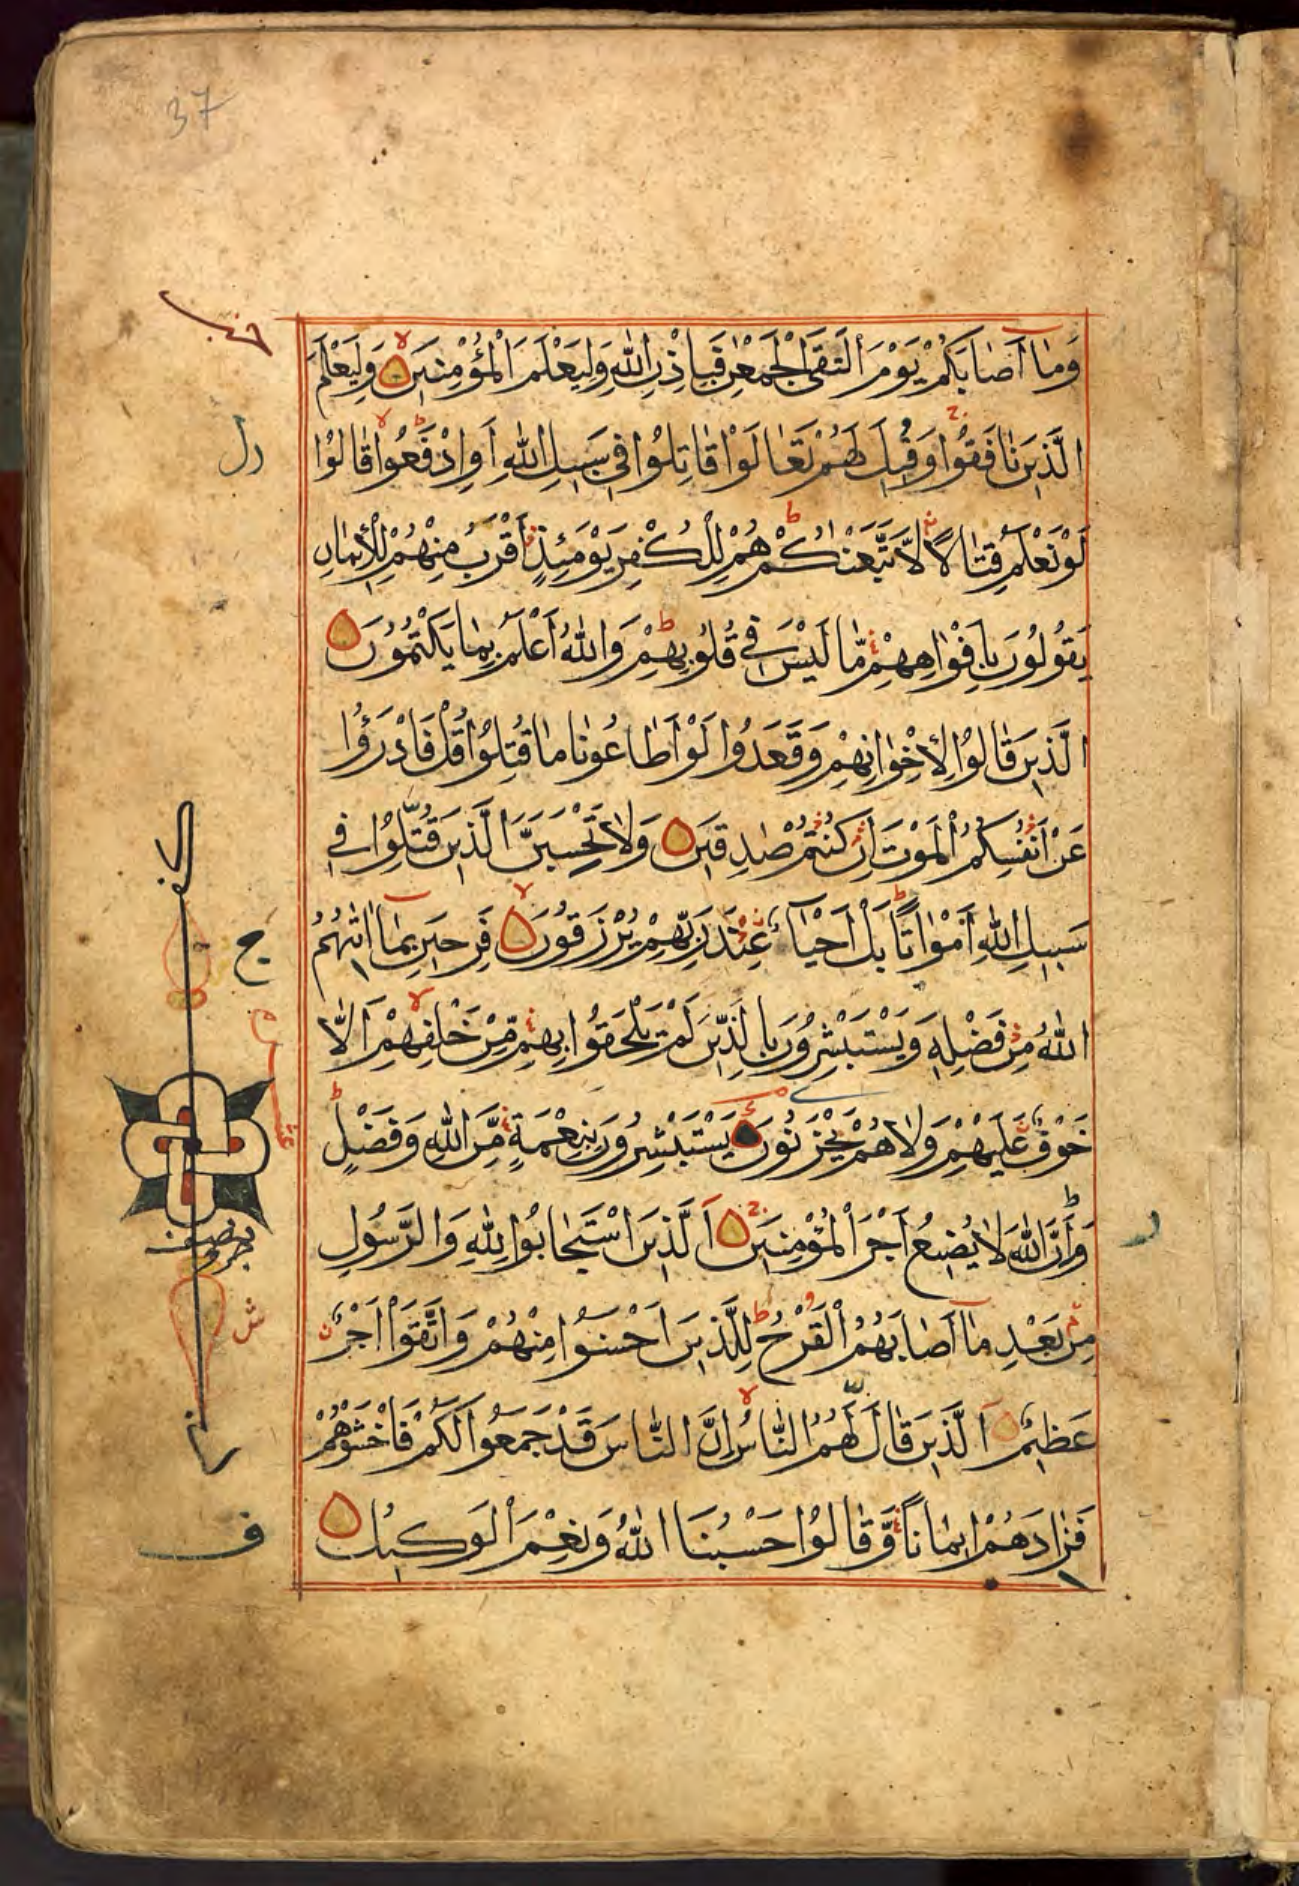 37
وَمَا أَصَابَكُمْ يَوْمَ الْتَقَى الْجَمْعٰنِ فَبِإِذْنِ اللّٰهِ وَلِيَعْلَمَ الْمُؤْمِنِينَ وَلِيَعْلَمَ
الَّذِينَ نَافَقُوا وَقِيلَ لَهُمْ تَعَالَوْا قَاتِلُوا فِي سَبِيلِ اللّٰهِ أَوِ ادْفَعُوا قَالُوا
لَوْ نَعْلَمُ قِتَالًا لَّاتَّبَعْنٰكُمْ هُمْ لِلْكُفْرِ يَوْمَئِذٍ أَقْرَبُ مِنْهُمْ لِلْإِيمَانِ
يَقُولُونَ بِأَفْوَاهِهِمْ مَّا لَيْسَ فِي قُلُوبِهِمْ وَاللّٰهُ أَعْلَمُ بِمَا يَكْتُمُونَ
الَّذِينَ قَالُوا لِإِخْوَانِهِمْ وَقَعَدُوا لَوْ أَطَاعُونَا مَا قُتِلُوا قُلْ فَادْرَؤُا
عَنْ أَنْفُسِكُمُ الْمَوْتَ إِنْ كُنْتُمْ صٰدِقِينَ وَلَا تَحْسَبَنَّ الَّذِينَ قُتِلُوا فِي
سَبِيلِ اللّٰهِ أَمْوَاتًا بَلْ أَحْيَاءٌ عِنْدَ رَبِّهِمْ يُرْزَقُونَ فَرِحِينَ بِمَا اٰتٰهُمُ
اللّٰهُ مِنْ فَضْلِهِ وَيَسْتَبْشِرُونَ بِالَّذِينَ لَمْ يَلْحَقُوا بِهِمْ مِّنْ خَلْفِهِمْ أَلَّا
خَوْفٌ عَلَيْهِمْ وَلَا هُمْ يَحْزَنُونَ يَسْتَبْشِرُونَ بِنِعْمَةٍ مِّنَ اللّٰهِ وَفَضْلٍ
وَأَنَّ اللّٰهَ لَا يُضِيعُ أَجْرَ الْمُؤْمِنِينَ اَلَّذِينَ اسْتَجَابُوا لِلّٰهِ وَالرَّسُولِ
مِنْ بَعْدِ مَا أَصَابَهُمُ الْقَرْحُ لِلَّذِينَ أَحْسَنُوا مِنْهُمْ وَاتَّقَوْا أَجْرٌ
عَظِيمٌ اَلَّذِينَ قَالَ لَهُمُ النَّاسُ إِنَّ النَّاسَ قَدْ جَمَعُوا لَكُمْ فَاخْشَوْهُمْ
فَزَادَهُمْ إِيمَانًا وَّقَالُوا حَسْبُنَا اللّٰهُ وَنِعْمَ الْوَكِيلُ